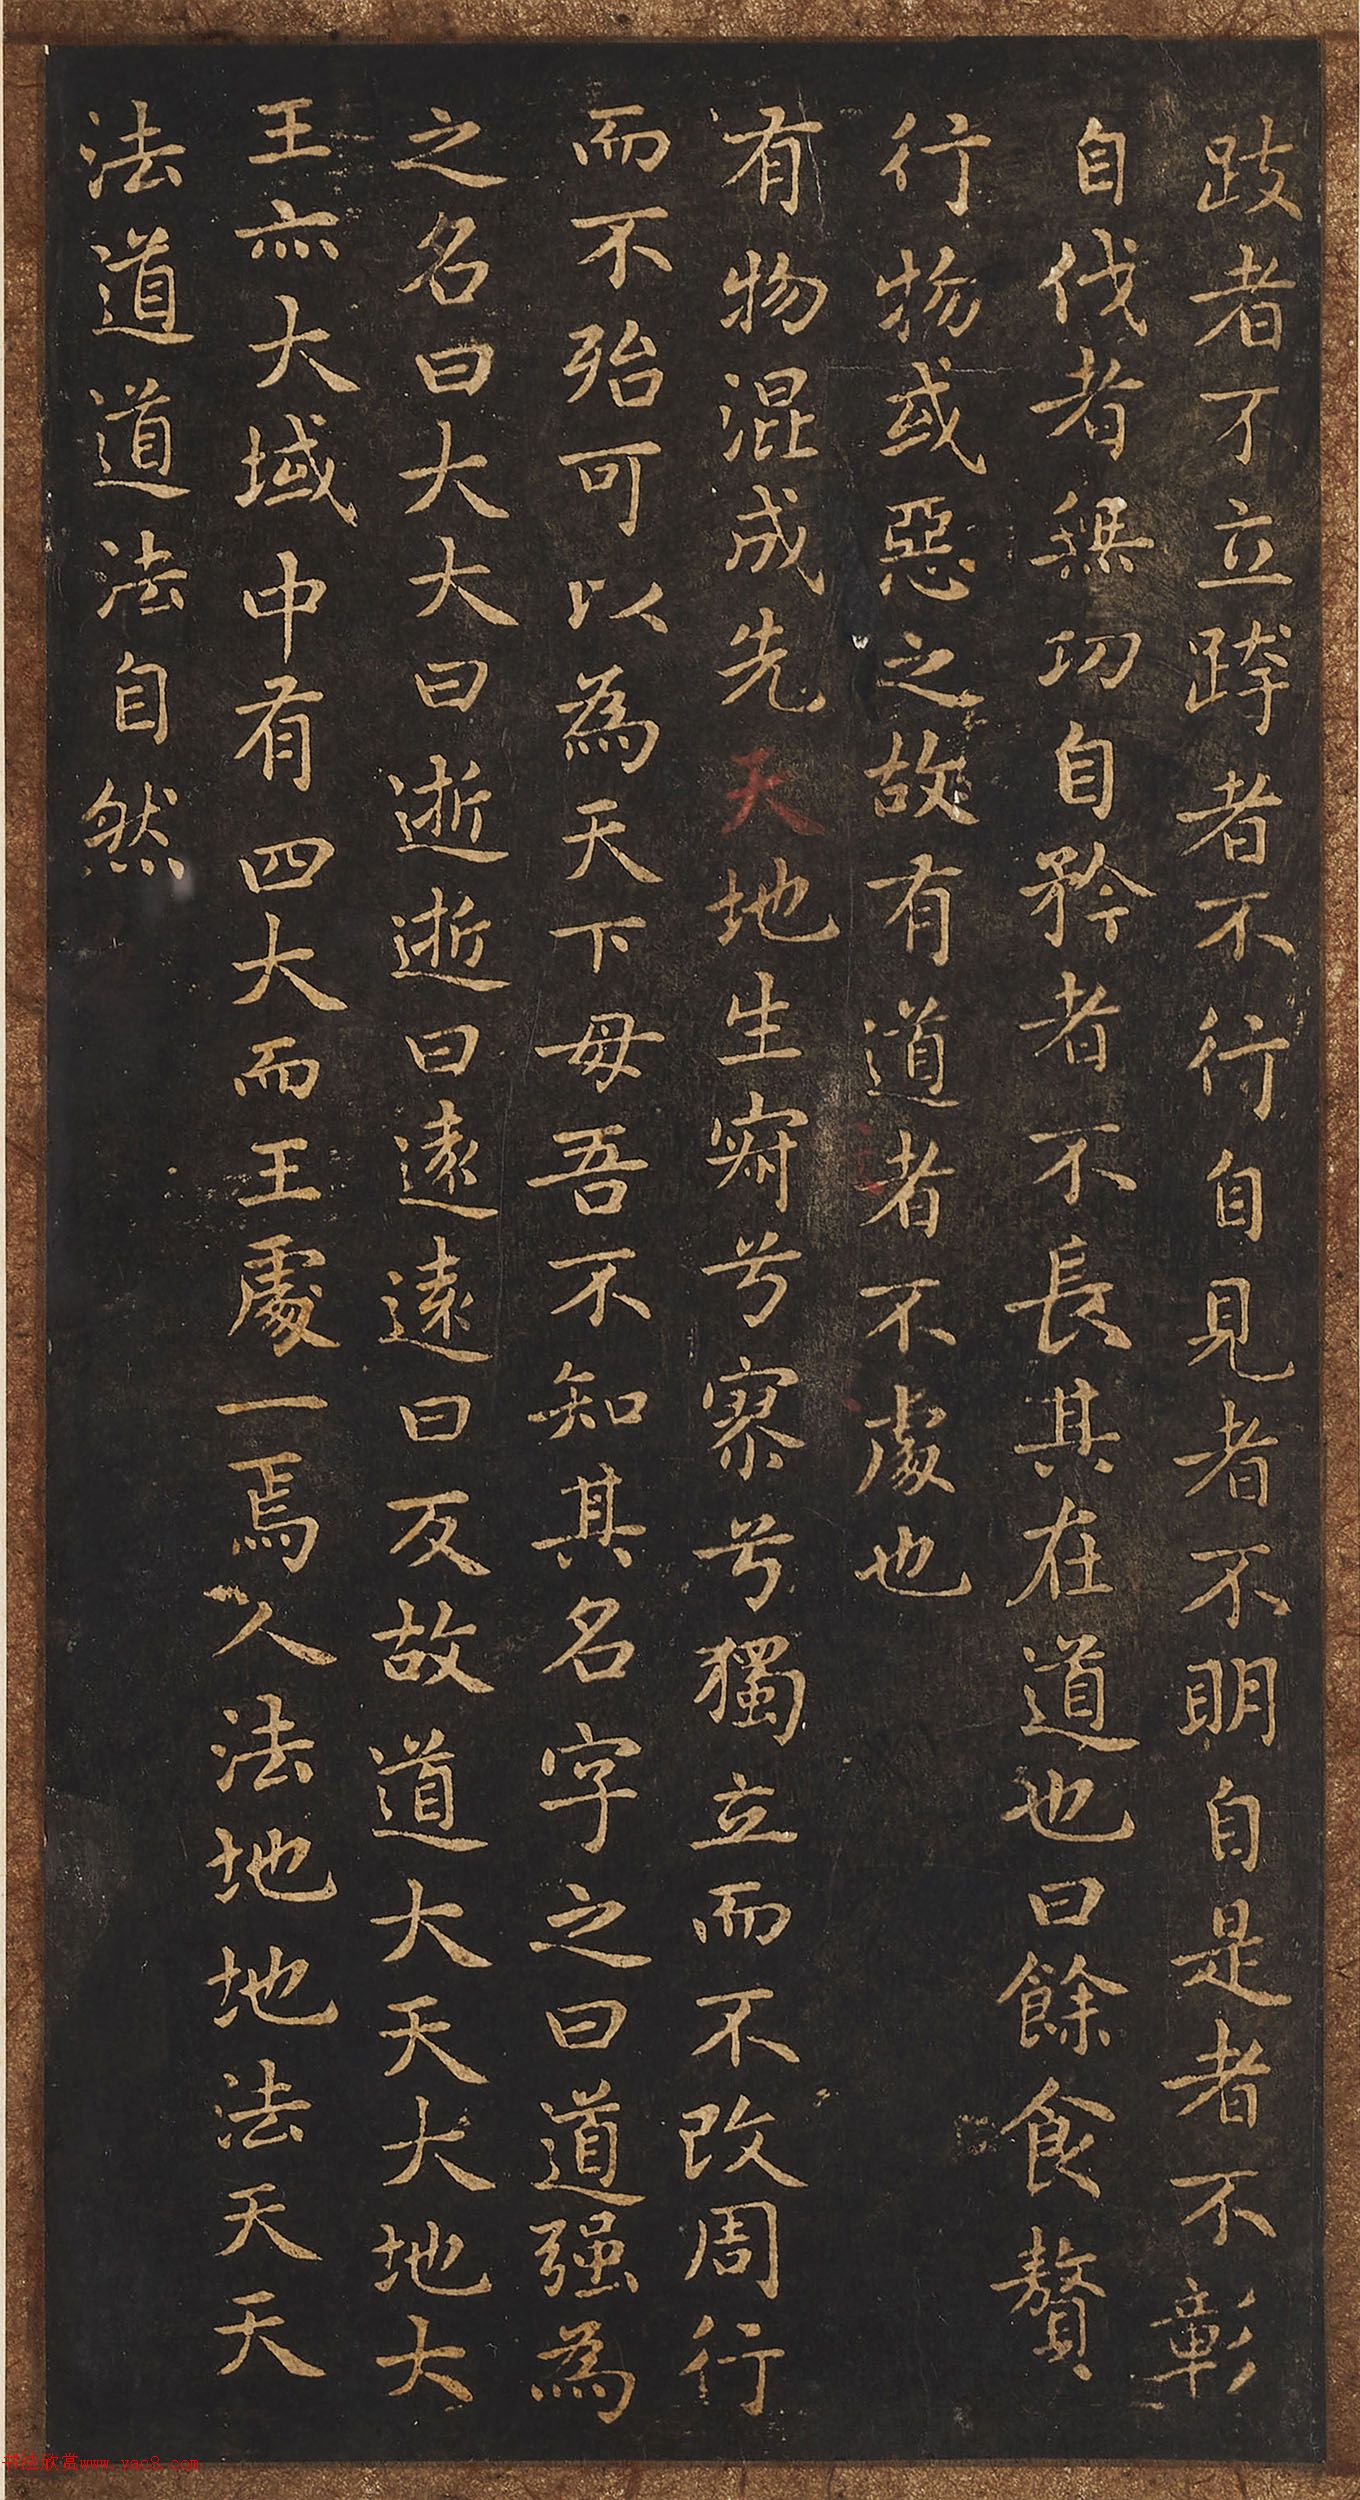 跂者不立跨者不行自見者不明自是者不彰
自伐者無功自矜者不長其在道也曰餘食贅
行物或惡之故有道者不處也
有物混成先天地生寂兮寥兮獨立而不改周行
而不殆可以為天下母吾不知其名字之曰道強為
之名曰大大曰逝逝曰遠遠曰反故道大天大地大
王亦大域中有四大而王處一焉人法地地法天天
法道道法自然
书法欣赏www.yac8.com